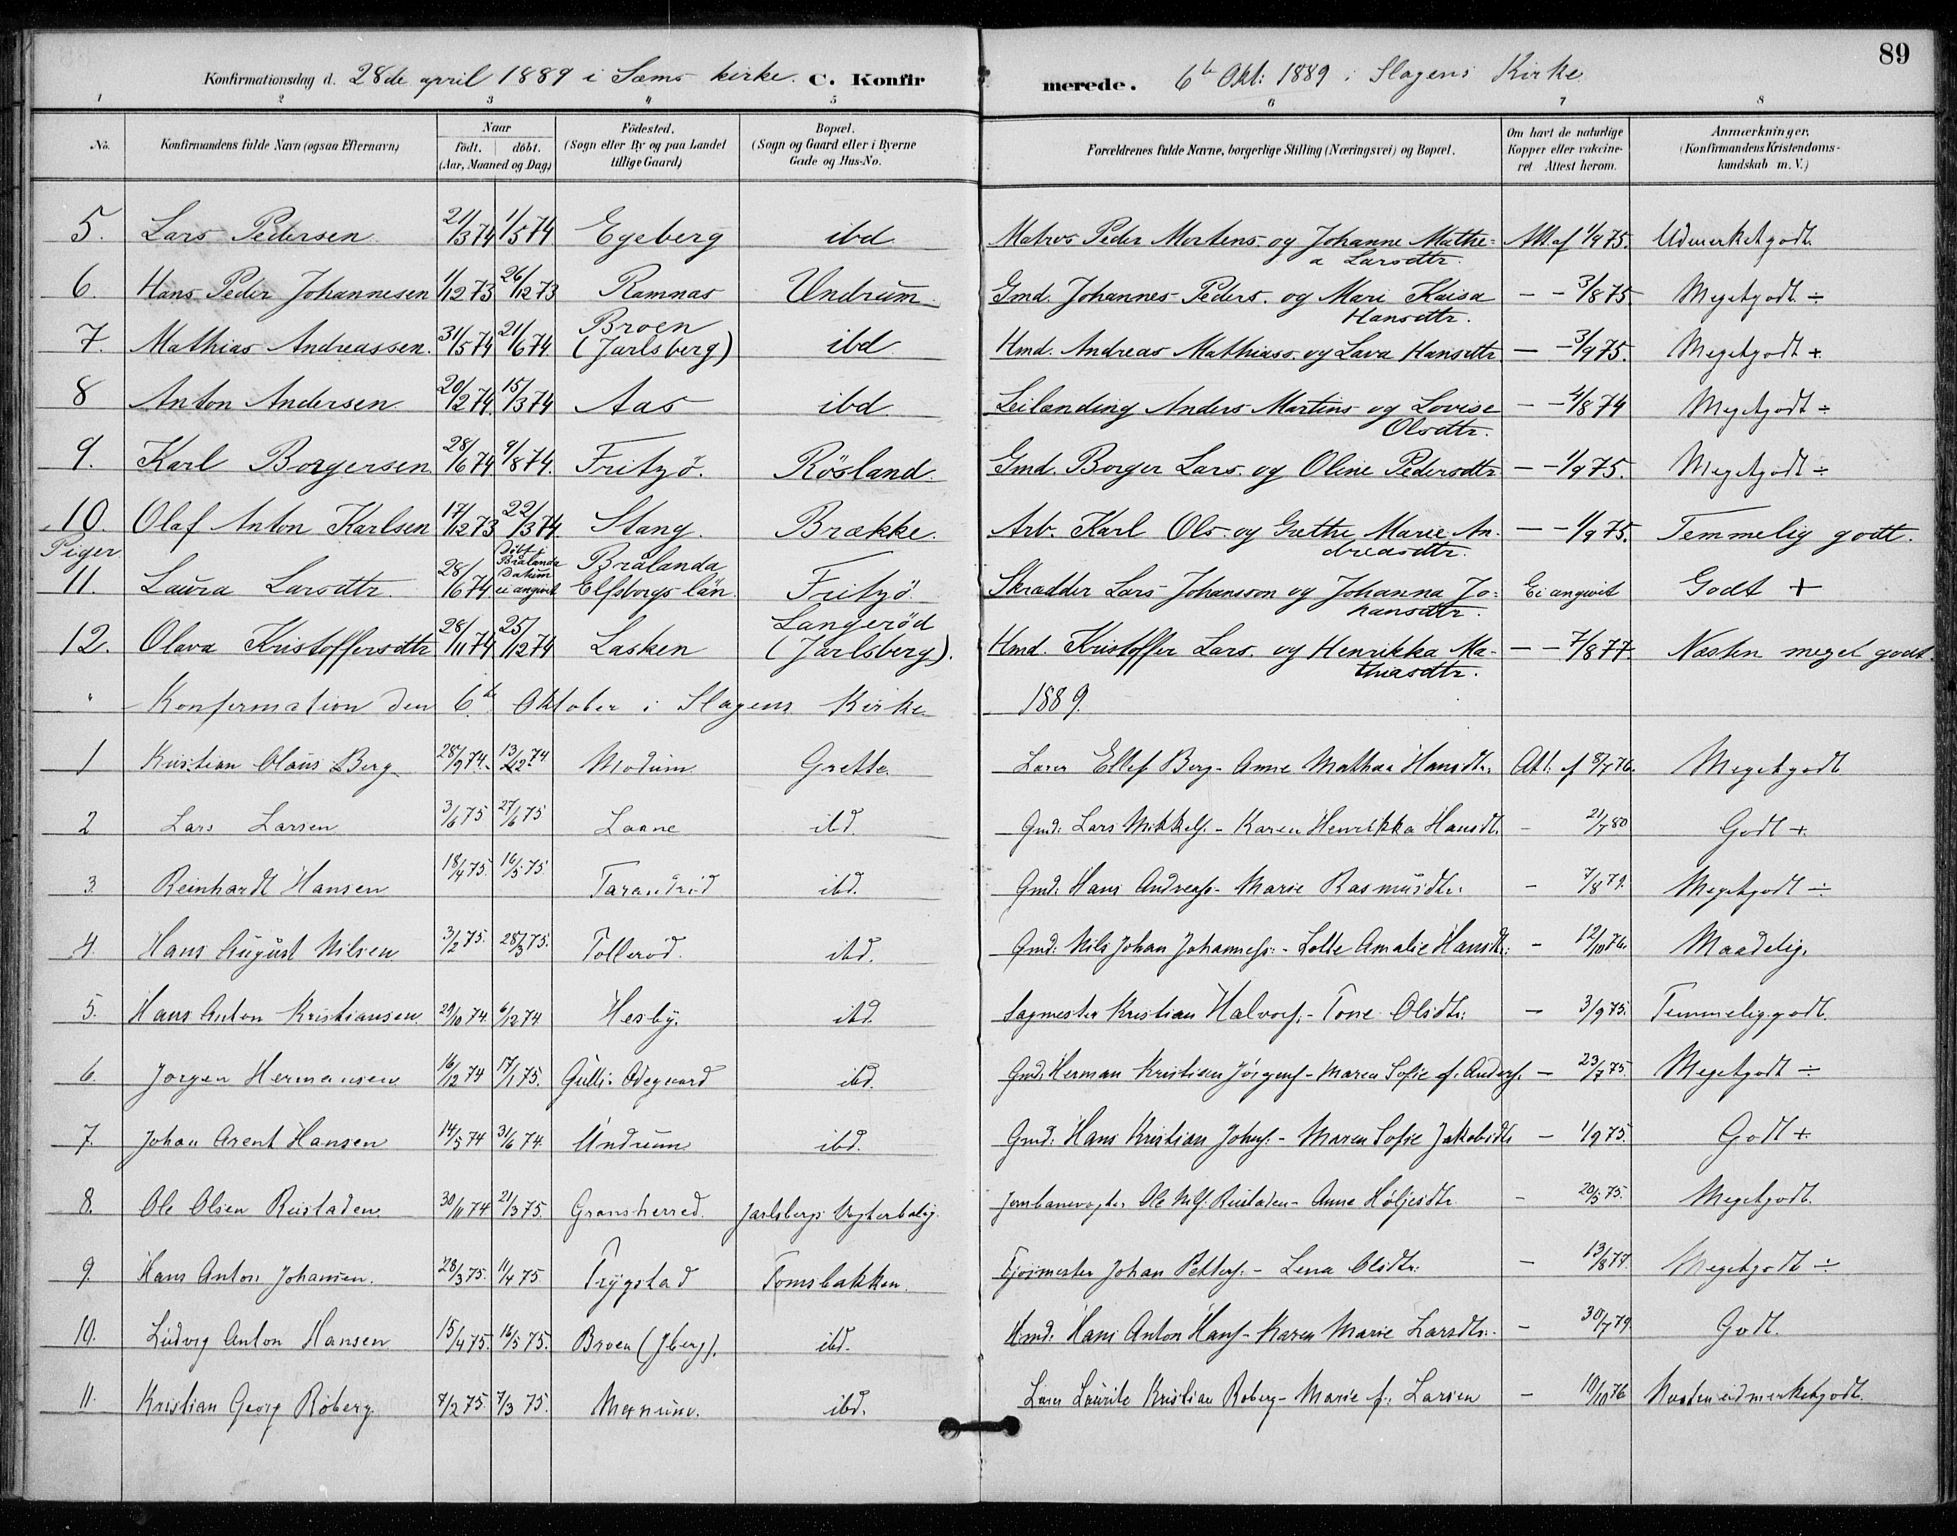 89
Konfirmationsdag d. 28de april 1889 i Sems kirke. C. Konfirmerede. 6te Okt: 1889 i Slagens Kirke
1 2 3 4 5 6 7 8
No. Konfirmandens fulde Navn (ogsaa Efternavn) Naar födt. döbt. (Aar, Maaned og Dag) Födested. (Sogn eller By og paa Landet tillige Gaard) Bopæl. (Sogn og Gaard eller i Byerne Gade og Hus-No. Forældrenes fulde Navne, borgerlige Stilling (Næringsvei) og Bopæl. Om havt de naturlige Kopper eller vakcineret Attest herom. Anmærkninger. (Konfirmandens Kristendomskundskab m. V.)
5. Lars Pedersen 21/3 74 1/5 74 Egeberg ibd Matros Peder Mortens. og Johanne Mathea Larsdtr. Att af 1/9 75. Udmerket godt.
6. Hans Peder Johannesen 1/12 73 26/12 73 Ramnas Undrum Gmd. Johannes Peders. og Mari Kaisa Hansdtr. — - 3/8 75. Meget godt ÷
7. Mathias Andreassen. 31/5 74 21/6 74. Broen (Jarlsberg) ibd Hmd. Andreas Mathiass. og Lava Hansdtr — - 3/9 75. Meget godt +
8 Anton Andersen 20/2 74. 15/3 74 Aas ibd Leilending Anders Martins. og Lovise Olsdtr. — - 4/8 74 Meget godt ÷
9. Karl Borgersen 28/6 74 9/8 74. Fritzö. Rösland. Gmd. Borger Lars. og Oline Pedersdtr — - 1/9 75. Meget godt ÷
10. Olaf Anton Karlsen 17/12 73 22/3 74. Stang. Brække. Arb. Karl Ols. og Grethe Marie Andreasdtr. — - 1/9 75. Temmelig godt.
Piger
11. Laura Larsdtr. 28/6 74 Döbt i Brålanda Datum ei angivit Brålanda Elfsborgs län. Fritzö. Skrædder Lars Johansson og Johanna Johansdtr. Ei angivit Godt +
12. Olava Kristoffersdtr 28/11 74 25/12 74 Lasken Langeröd (Jarlsberg). Hmd. Kristoffer Lars. og Henrikka Mathiasdtr. — - 7/8 77. Næsten meget godt.
" Konfirmation den 6te Oktober i Slagens Kirke 1889.
1 Kristian Olaus Berg 28/9 74. 13/12 74 Modum Grette Lærer Ellef Berg - Anne Mathea Hansdtr. Att. af 8/7 76. Meget godt
2 Lars Larsen 3/6 75 27/6 75 Laane ibd. Gmd: Lars Mikkels. - Karen Henrikka Hansdt. - 21/7 80 Godt +
3. Reinhardt Hansen 18/4 75. 16/5 75. Taranrød ibd. Gmd: Hans Andreass - Marie Rasmusdtr. - 7/8 79. Meget godt ÷
4. Hans August Nilsen 3/2 75. 28/3 75. Tollerød. ibd. Gmd: Nils Johan Johanness: - Lotte Amalie Hansdtr: - 12/10 76. Maadelig.
5. Hans Anton Kristiansen. 29/10 74 6/12 74 Hesby. ibd. Sagmester Kristian Halvors. - Tone Olsdtr: — 3/9 75. Temmelig godt.
6. Jørgen Hermansen 16/12 74 17/1 75. Gulli Ødegaard ibd. Gmd: Herman Kristian Jørgens - Maren Sofie f. Anders. — 23/7 75. Meget godt ÷
7. Johan Arent Hansen 14/5 74 31/6 74. Undrum ibd. Gmd: Hans Kristian Johns: - Maren Sofie Jakobsdtr — 1/9 75. Godt +
8. Ole Olsen Rustaden. 30/11 74 21/3 75. Gransherred. Jarlsbergs Vogterbolig. Jernbanevogter Ole Rustaden - Anne Høljesdtr - 20/5 75. Meget godt.
9. Hans Anton Johansen. 28/3 75. 11/4 75. Trygstad Tomsbakken. Johan Petters: - Lena Olsdtr: — 13/8 77. Meget godt ÷
10. Ludvig Anton Hansen 15/4 75. 16/5 75. Broen (Jberg). ibd. Hmd: Hans Anton Hans - Karen Marie Larsdtr: - 30/7 79 Godt.
11. Kristian Georg Roberg. 4/2 75. 7/3 75. ibd. Lærer Laurits Kristian Roberg - Marie f. Larsen - 10/10 76 Næsten udmerket godt.